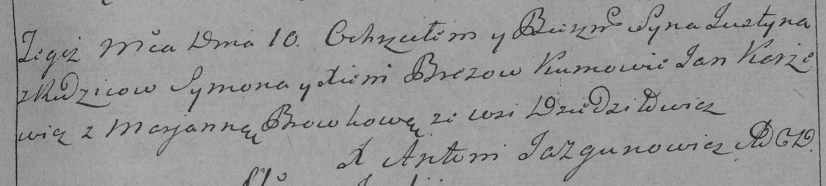 Tegoż Mca Dnia 10. Ochrzciłem y Bierzm Syna Justyna
z Rodzicow Symona y Xieni Brezow Kumowie Jan Korże
wicz z Marjanną Browkową ze wsi Dziedziłowicz
X Antoni Jazgunowicz